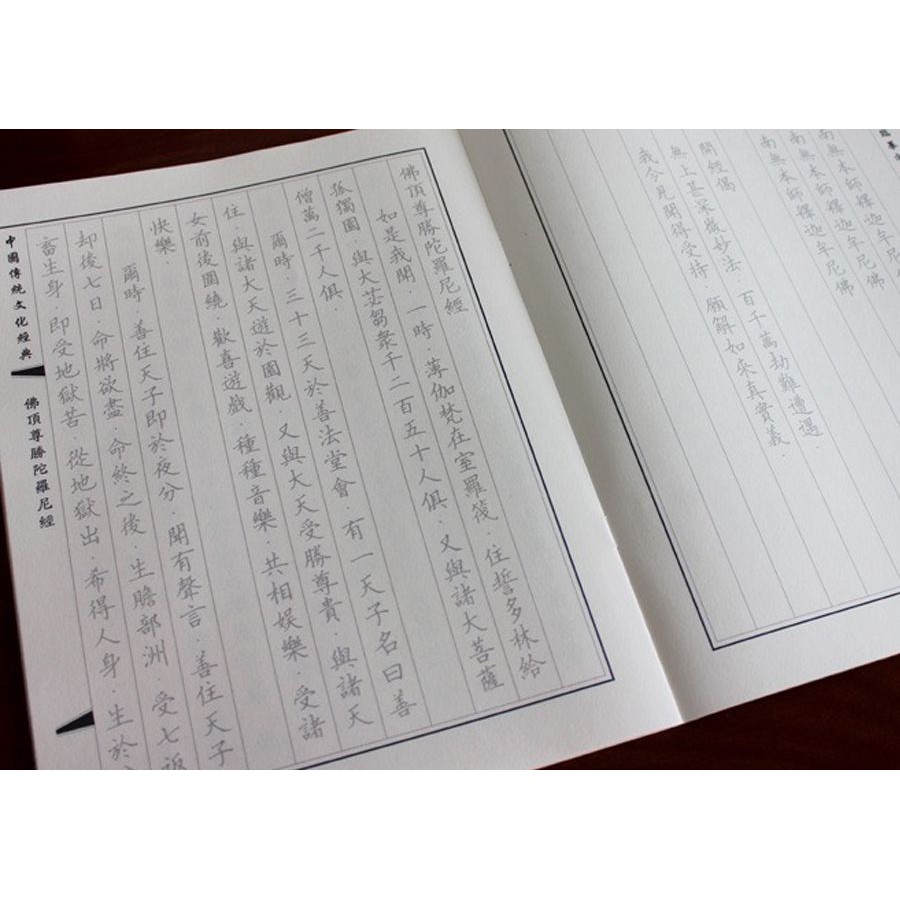 南無本師釋迦牟尼佛
南無本師釋迦牟尼佛
南無本師釋迦牟尼佛
開經偈
無上甚深微妙法·百千萬劫難遭遇·
我今見聞得受持·願解如來真實義·
佛頂尊勝陀羅尼經
如是我聞·一時·薄伽梵在室羅筏·住誓多林給
孤獨園·與大苾芻衆千二百五十人俱·又與諸大菩薩
僧萬二千人俱
爾時·三十三天於善法堂會·有一天子名曰善
住·與諸大天遊於園觀·又與大天受勝尊貴·與諸天
女前後圍繞·歡喜遊戲·種種音樂·共相娛樂·受諸
快樂·
爾時·善住天子即於夜分·聞有聲言·善住天子
却後七日·命將欲盡·命終之後·生贍部洲·受七返
畜生身·即受地獄苦·從地獄出·希得人身·生於
中國傳統文化經典
佛頂尊勝陀羅尼經